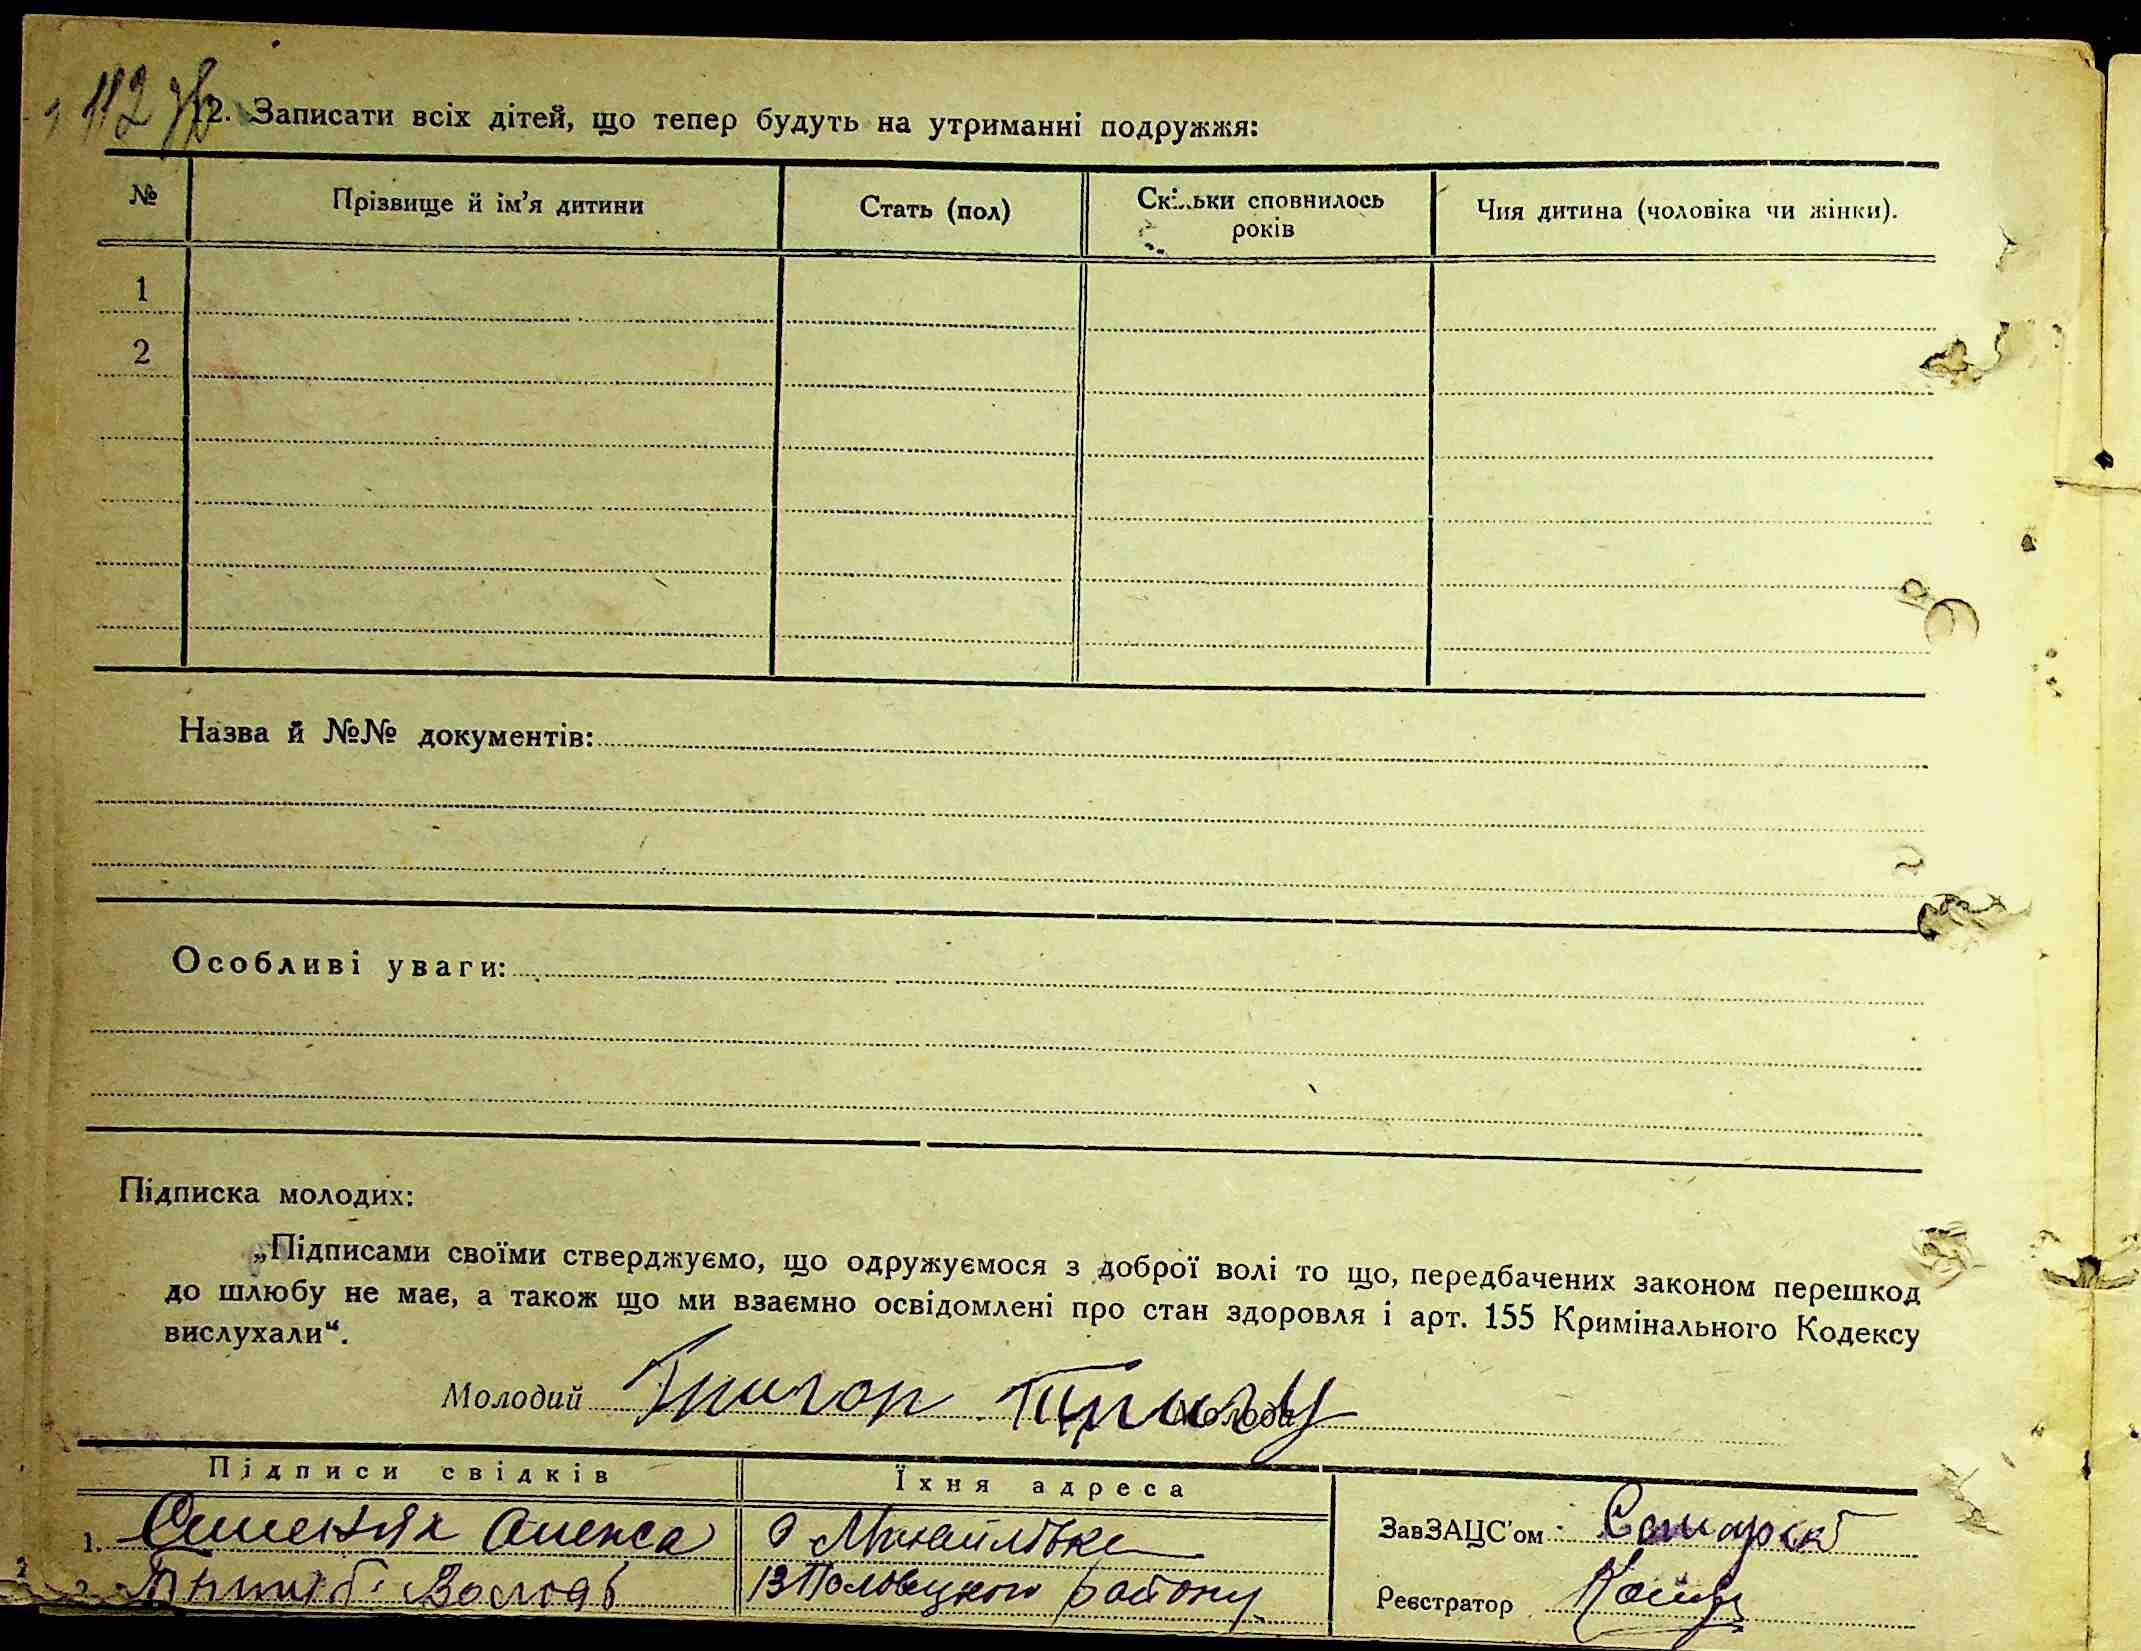 112 зв
12. Записати всіх дітей, що тепер будуть на утриманні подружжя:
№ Прізвище й ім'я дитини Стать (пол) Скільки сповнилось років Чия дитина (чоловіка чи жінки).
1
2
Назва й №№ документів:
Особливі уваги:
Підписка молодих:
„Підписами своїми стверджуємо, що одружуємося з доброї волі то що, передбачених законом перешкод
до шлюбу не має, а також що ми взаємно освідомлені про стан здоров‎ля і арт. 155 Кримінального Кодексу
вислухали“.
Молодий Григор Молода
Підписи свідків Їхня адреса
1. Олекса Михайлівка
ЗавЗАЦС'ом
2. Половецкого району
Реєстратор